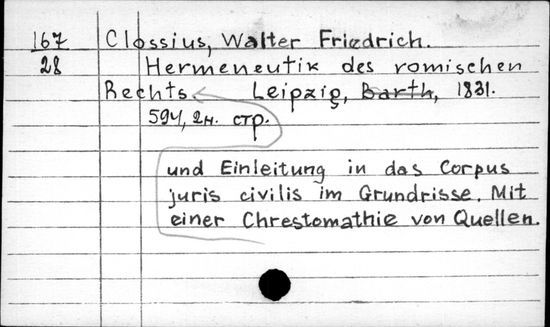 167 Clossius, Walter Friedrich.
28 Hermeneutik des romischen
Rechts Leipzig, Barth, 1831.
594, 2н. стр.
und Einleitung in das Corpus
juris civilis im Grundrisse. Mit
einer Chrestomathie von Quellen.